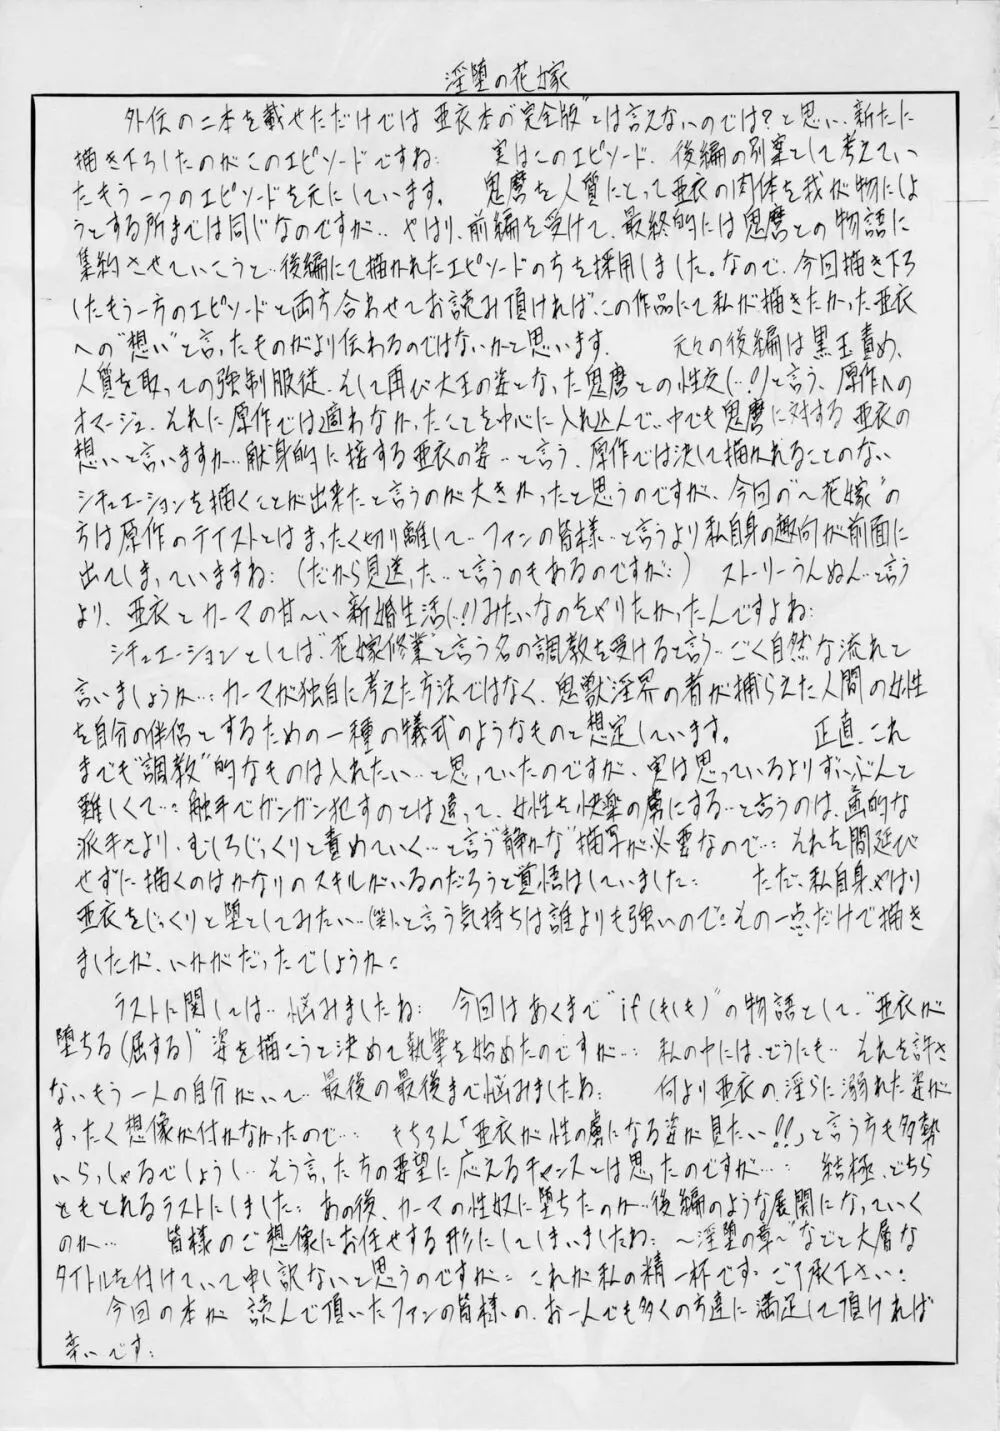 淫堕の花嫁
外伝の二本を載せただけでは亜衣本の"完全版"とは言えないのでは?と思い、新たに
描き下ろしたのがこのエピソードですね: 実はこのエピソード、後編の別案として考えてい
たもう一つのエピソードを元にしています。 鬼麿を人質にとって亜衣の肉体を我が物にしよ
うとする所までは同じなのですが‥やはり、前編を受けて、最終的には鬼麿との物語に
集約させていこうと‥後編にて描かれたエピソードの方を採用しました。なので、今回描き下ろ
したもう一方のエピソードと両方合わせてお読み頂ければ、この作品にて私が描きたかった亜衣
への"想い"と言ったものがより伝わるのではないかと思います。 元々の後編は黒玉責め、
人質を取っての強制服従、そして再び大王の姿となった鬼麿との性交(‥!)と言う、原作への
オマージュ、それに原作では適わなかったことを中心に入れ込んで‥中でも鬼麿に対する亜衣の
想いと言いますか‥献身的に接する亜衣の姿‥と言う、原作では決して描かれることのない
シチュエーションを描くことが出来たと言うのが大きかったと思うのですが、今回の"〜花嫁"の
方は原作のテイストとはまったく切り離して‥ファンの皆様‥と言うより私自身の趣向が前面に
出てしまっていますね: (だから見送った‥と言うのもあるのですが:) ストーリーうんぬん‥と言う
より、亜衣とカーマの甘〜い新婚生活(!)みたいなのをやりたかったんですよね:
シチュエーションとしては"花嫁修業"と言う名の調教を受けると言う‥ごく自然な流れと
言いましょうか‥: カーマが独自に考えた方法ではなく、鬼獣淫界の者が捕らえた人間の女性
を自分の伴侶とするための一種の儀式のようなものと想定しています。 正直、これ
までも"調教"的なものは入れたい‥と思っていたのですが、実は思っているよりずいぶんと
難しくて‥: 触手でガンガン犯すのとは違って、女性を快楽の虜にする‥と言うのは、画的な
派手さより、むしろじっくりと責めていく‥と言う"静かな"描写が必要なので‥: それを間延び
せずに描くのはかなりのスキルがいるのだろうと覚悟はしていました: ただ、私自身、やはり
亜衣をじっくりと堕としてみたい‥(笑)と言う気持ちは誰よりも強いので: その一点だけで描き
ましたが、いかがだったでしょうか:
ラストに関しては‥悩みましたね: 今回はあくまで"if(もしも)"の物語として、"亜衣が
堕ちる(屈する)"姿を描こうと決めて執筆を始めたのですが‥: 私の中には、どうにも‥それを許さ
ないもう一人の自分がいて‥最後の最後まで悩みましたね: 何より亜衣の、淫らに溺れた姿が
まったく想像が付かなかったので‥: もちろん「亜衣が性の虜になる姿が見たい!!」と言う方も多勢
いらっしゃるでしょうし‥そう言った方の要望に応えるチャンスとは思ったのですが‥: 結極、どちら
ともとれるラストにしました: あの後、カーマの性奴に堕ちたのか‥後編のような展開になっていく
のか‥ 皆様のご想像にお任せする形にしてしまいましたね: 〜淫堕の章〜などと大層な
タイトルを付けていて申し訳ないと思うのですが: これが私の精一杯です: ご了承下さい:
今回の本が 読んで頂いたファンの皆様の、お一人でも多くの方達に満足して頂ければ
幸いです: